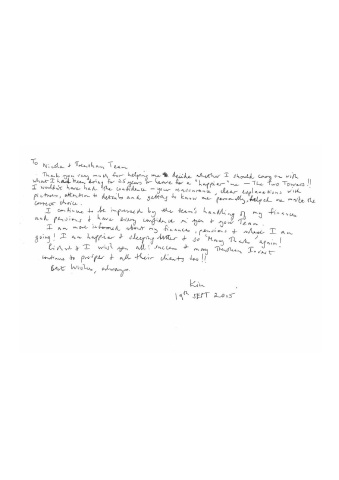 To Nicola & Trenshaw Team
Thank you very much for helping me decide whether I should carry on with
what I had been doing for 25 years or leave for a "happier" me – The Two Towers!!
I wouldn't have had the confidence – your reassurance, clear explanations with
pictures, attention to details and getting to know me personally, helped me make the
correct choice.
I continue to be impressed by the team's handling of my finances
and pensions & have every confidence in you & your Team.
I am more informed about my finances, pensions & where I am
going! I am happier & sleeping better & so "Many Thanks" again!
& I wish you all success & may Invest
continue to prosper & all their clients too!!
Best Wishes, always
Kim
19th SEPT 2015